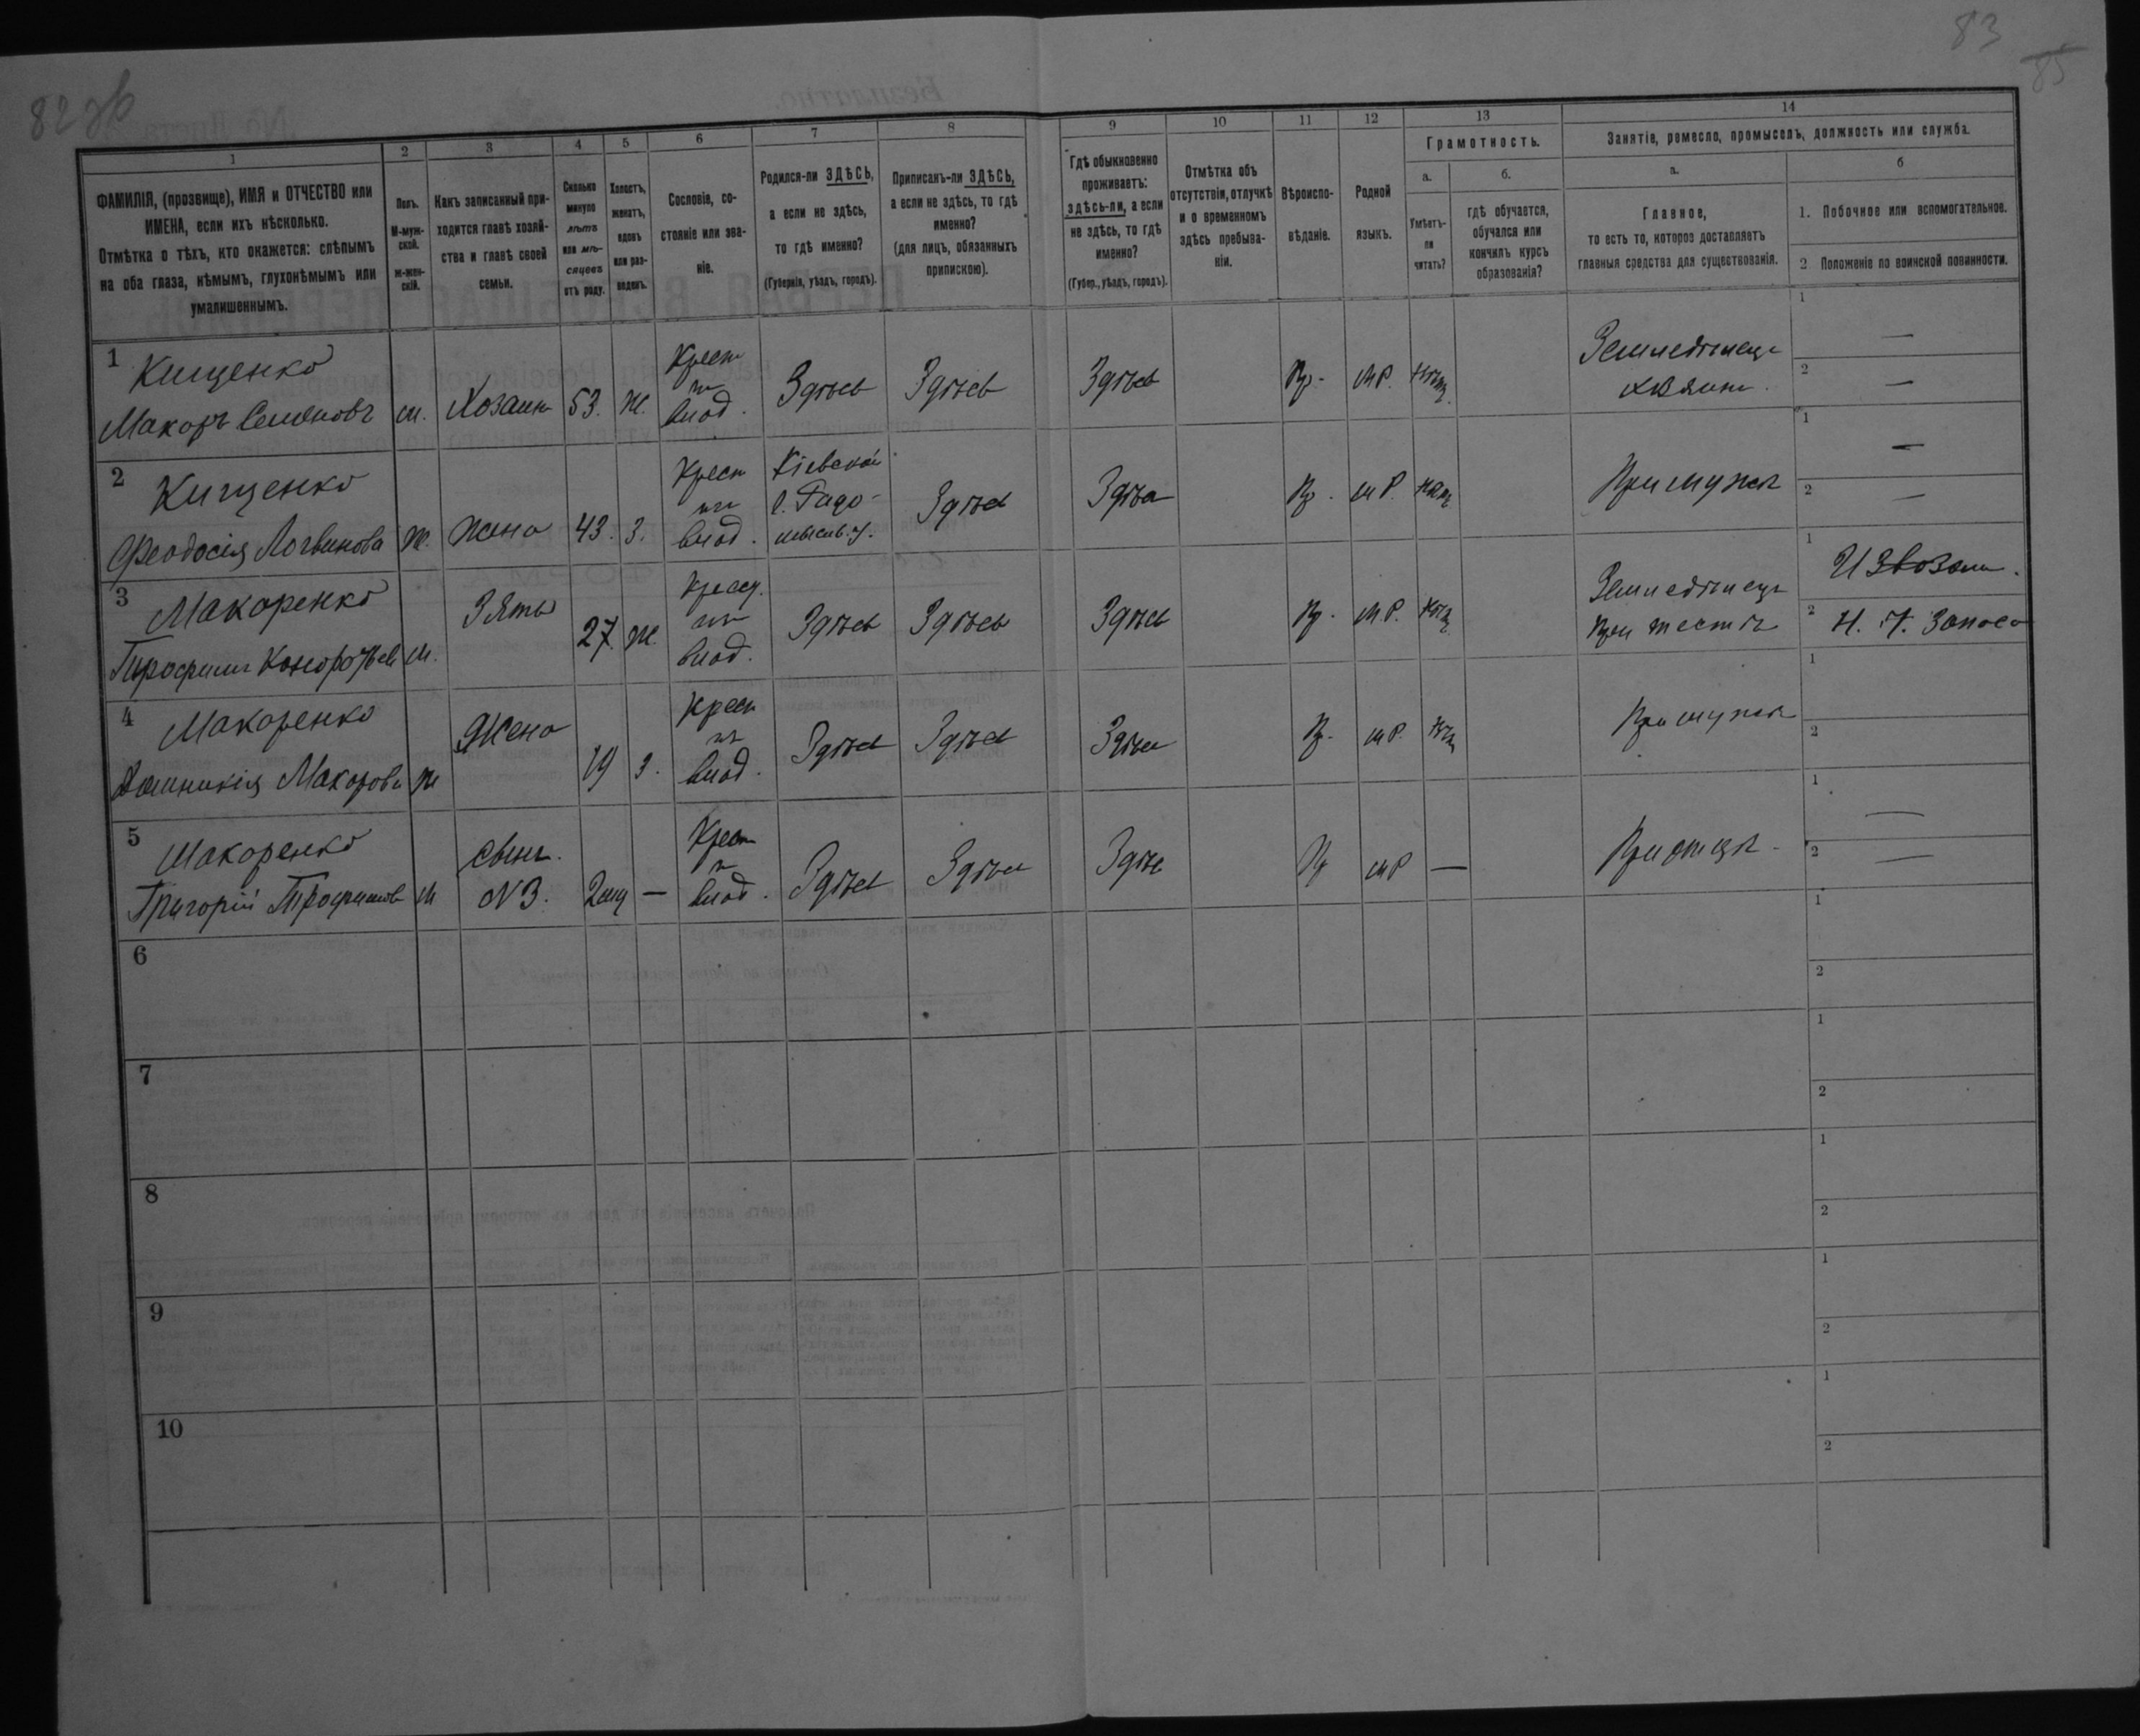 82 об
83
85
1
2
3
4
5
6
7
8
9
10
11
12
13
14
ФАМИЛІЯ, (прозвище), ИМЯ и ОТЧЕСТВО или
ИМЕНА, если ихъ нѣсколько.
Отмѣтка о тѣхъ, кто окажется: слѣпымъ
на оба глаза, нѣмымъ, глухонѣмымъ или
умалишеннымъ.
Полъ.
М-муж-
ской.
ж-жен-
скій.
Какъ записанный при-
ходится главѣ хозяй-
ства и главѣ своей
семьи.
Сколько
минуло
лѣтъ
или мѣ-
сяцевъ
отъ роду.
Холостъ,
женатъ,
вдовъ
или раз-
веденъ.
Сословіе, со-
стояніе или зва-
ніе.
Родился-ли ЗДѢСЬ,
а если не здѣсь,
то гдѣ именно?
(Губернія, уѣздъ, городъ).
Приписанъ-ли ЗДѢСЬ,
а если не здѣсь, то гдѣ
именно?
(для лицъ, обязанныхъ
припискою).
Гдѣ обыкновенно
проживаетъ:
здѣсь-ли, а если
не здѣсь, то гдѣ
именно?
(Губер., уѣздъ, городъ).
Отмѣтка объ
отсутствіи, отлучкѣ
и о временномъ
здѣсь пребыва-
ніи.
Вѣроиспо-
вѣданіе.
Родной
языкъ.
Грамотность.
а.
Умѣетъ-
ли
читать?
б.
гдѣ обучается,
обучался или
кончилъ курсъ
образованія?
Занятіе, ремесло, промыселъ, должность или служба.
а.
Главное,
то есть то, которое доставляетъ
главныя средства для существованія.
б
1. Побочное или вспомогательное.
2 Положеніе по воинской повинности.
1
Кищенко
Макаръ Семеновъ
м.
Хозяинъ
53.
ж.
Крест
из
влад.
Здѣсь
Здѣсь
Здѣсь
Пр.
мР.
Нѣтъ
Земледѣлецъ
хозяинъ.
1 —
2 —
2
Кищенко
Феодосія Логвинова
ж.
жена
43.
з.
Крест
из
влад.
Кіевской
г. Радо-
мысль. у.
Здѣсь
Здѣсь
Пр.
мР.
Нѣтъ
При мужѣ
1 —
2 —
3
Макаренко
м.
Зять
27.
ж.
Крест.
из
влад.
Здѣсь
Здѣсь
Здѣсь
Пр.
мР.
Нѣтъ
Земледѣлецъ
при тестѣ
1 Извозомъ.
2
4
Макаренко
Домникія Макарова
ж
Жена
19
з.
Крест
из
влад.
Здѣсь
Здѣсь
Здѣсь
Пр.
мР.
Нѣтъ
При мужѣ
1
2
5
Макаренко
Григорій Трофимовъ
м
сынъ.
N3.
2 мц
—
Крест
из
влад.
Здѣсь
Здѣсь
Здѣсь
Пр
мР
—
При отцѣ.
1 —
2 —
6
1
2
7
1
2
8
1
2
9
1
2
10
1
2